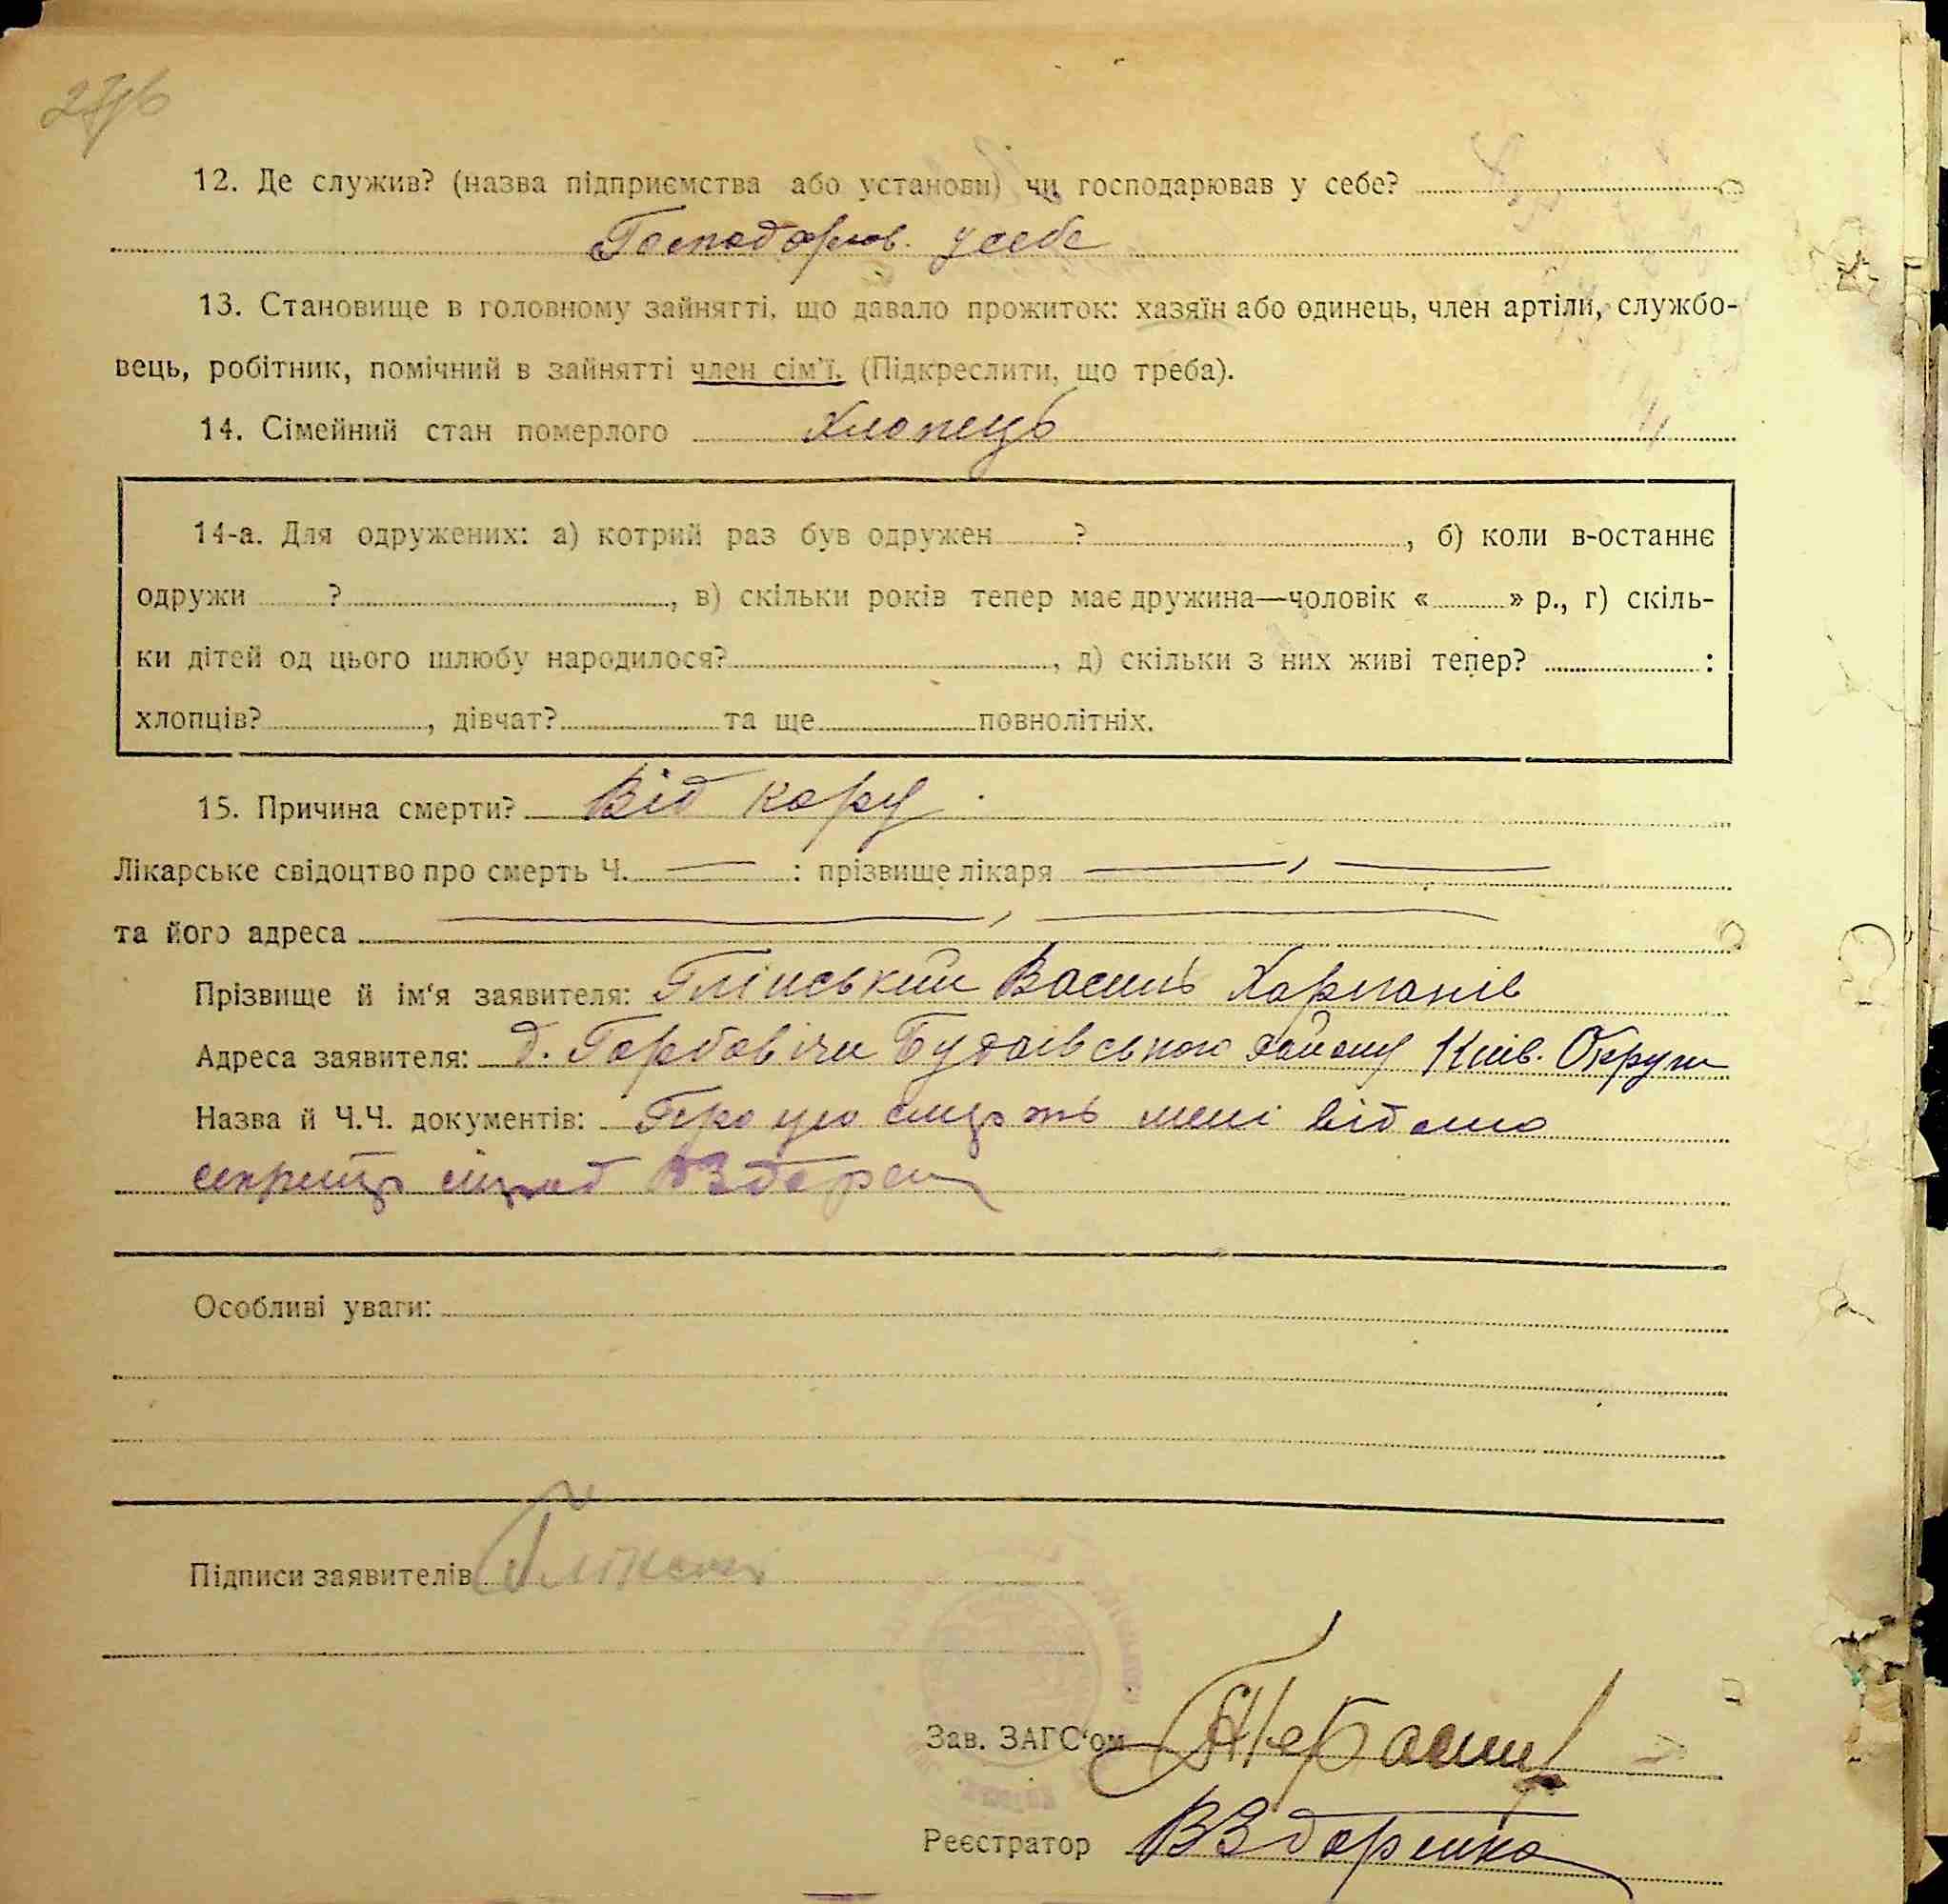 12. Де служив? (назва підприємства або установи) чи господарював у себе?
Господарюв. у себе
13. Становище в головному зайнятті, що давало прожиток: хазяїн або одинець, член артіли, службо-
вець, робітник, помічний в зайнятті член сім'ї. (Підкреслити, що треба).
14. Сімейний стан померлого Хлопець
14-а. Для одружених: а) котрий раз був одружен ? , б) коли в-останнє
одружи ? , в) скільки років тепер має дружина—чоловік « » р., г) скіль-
ки дітей од цього шлюбу народилося? , д) скільки з них живі тепер? :
хлопців? , дівчат? та ще повнолітніх.
15. Причина смерти? Від кору
Лікарське свідоцтво про смерть Ч. — : прізвище лікаря — , —
та його адреса — , —
Прізвище й ім'я заявителя: Глінський Василь Харланів
Адреса заявителя: д. Горбовичи Будаівського району Київ. Округи
Назва й Ч.Ч. документів: Про цю смерть мені відомо
секретар сільрад ВЗдорен
Особливі уваги:
Підписи заявителів Глінский
Зав. ЗАГС'ом
Реєстратор ВЗдоренко